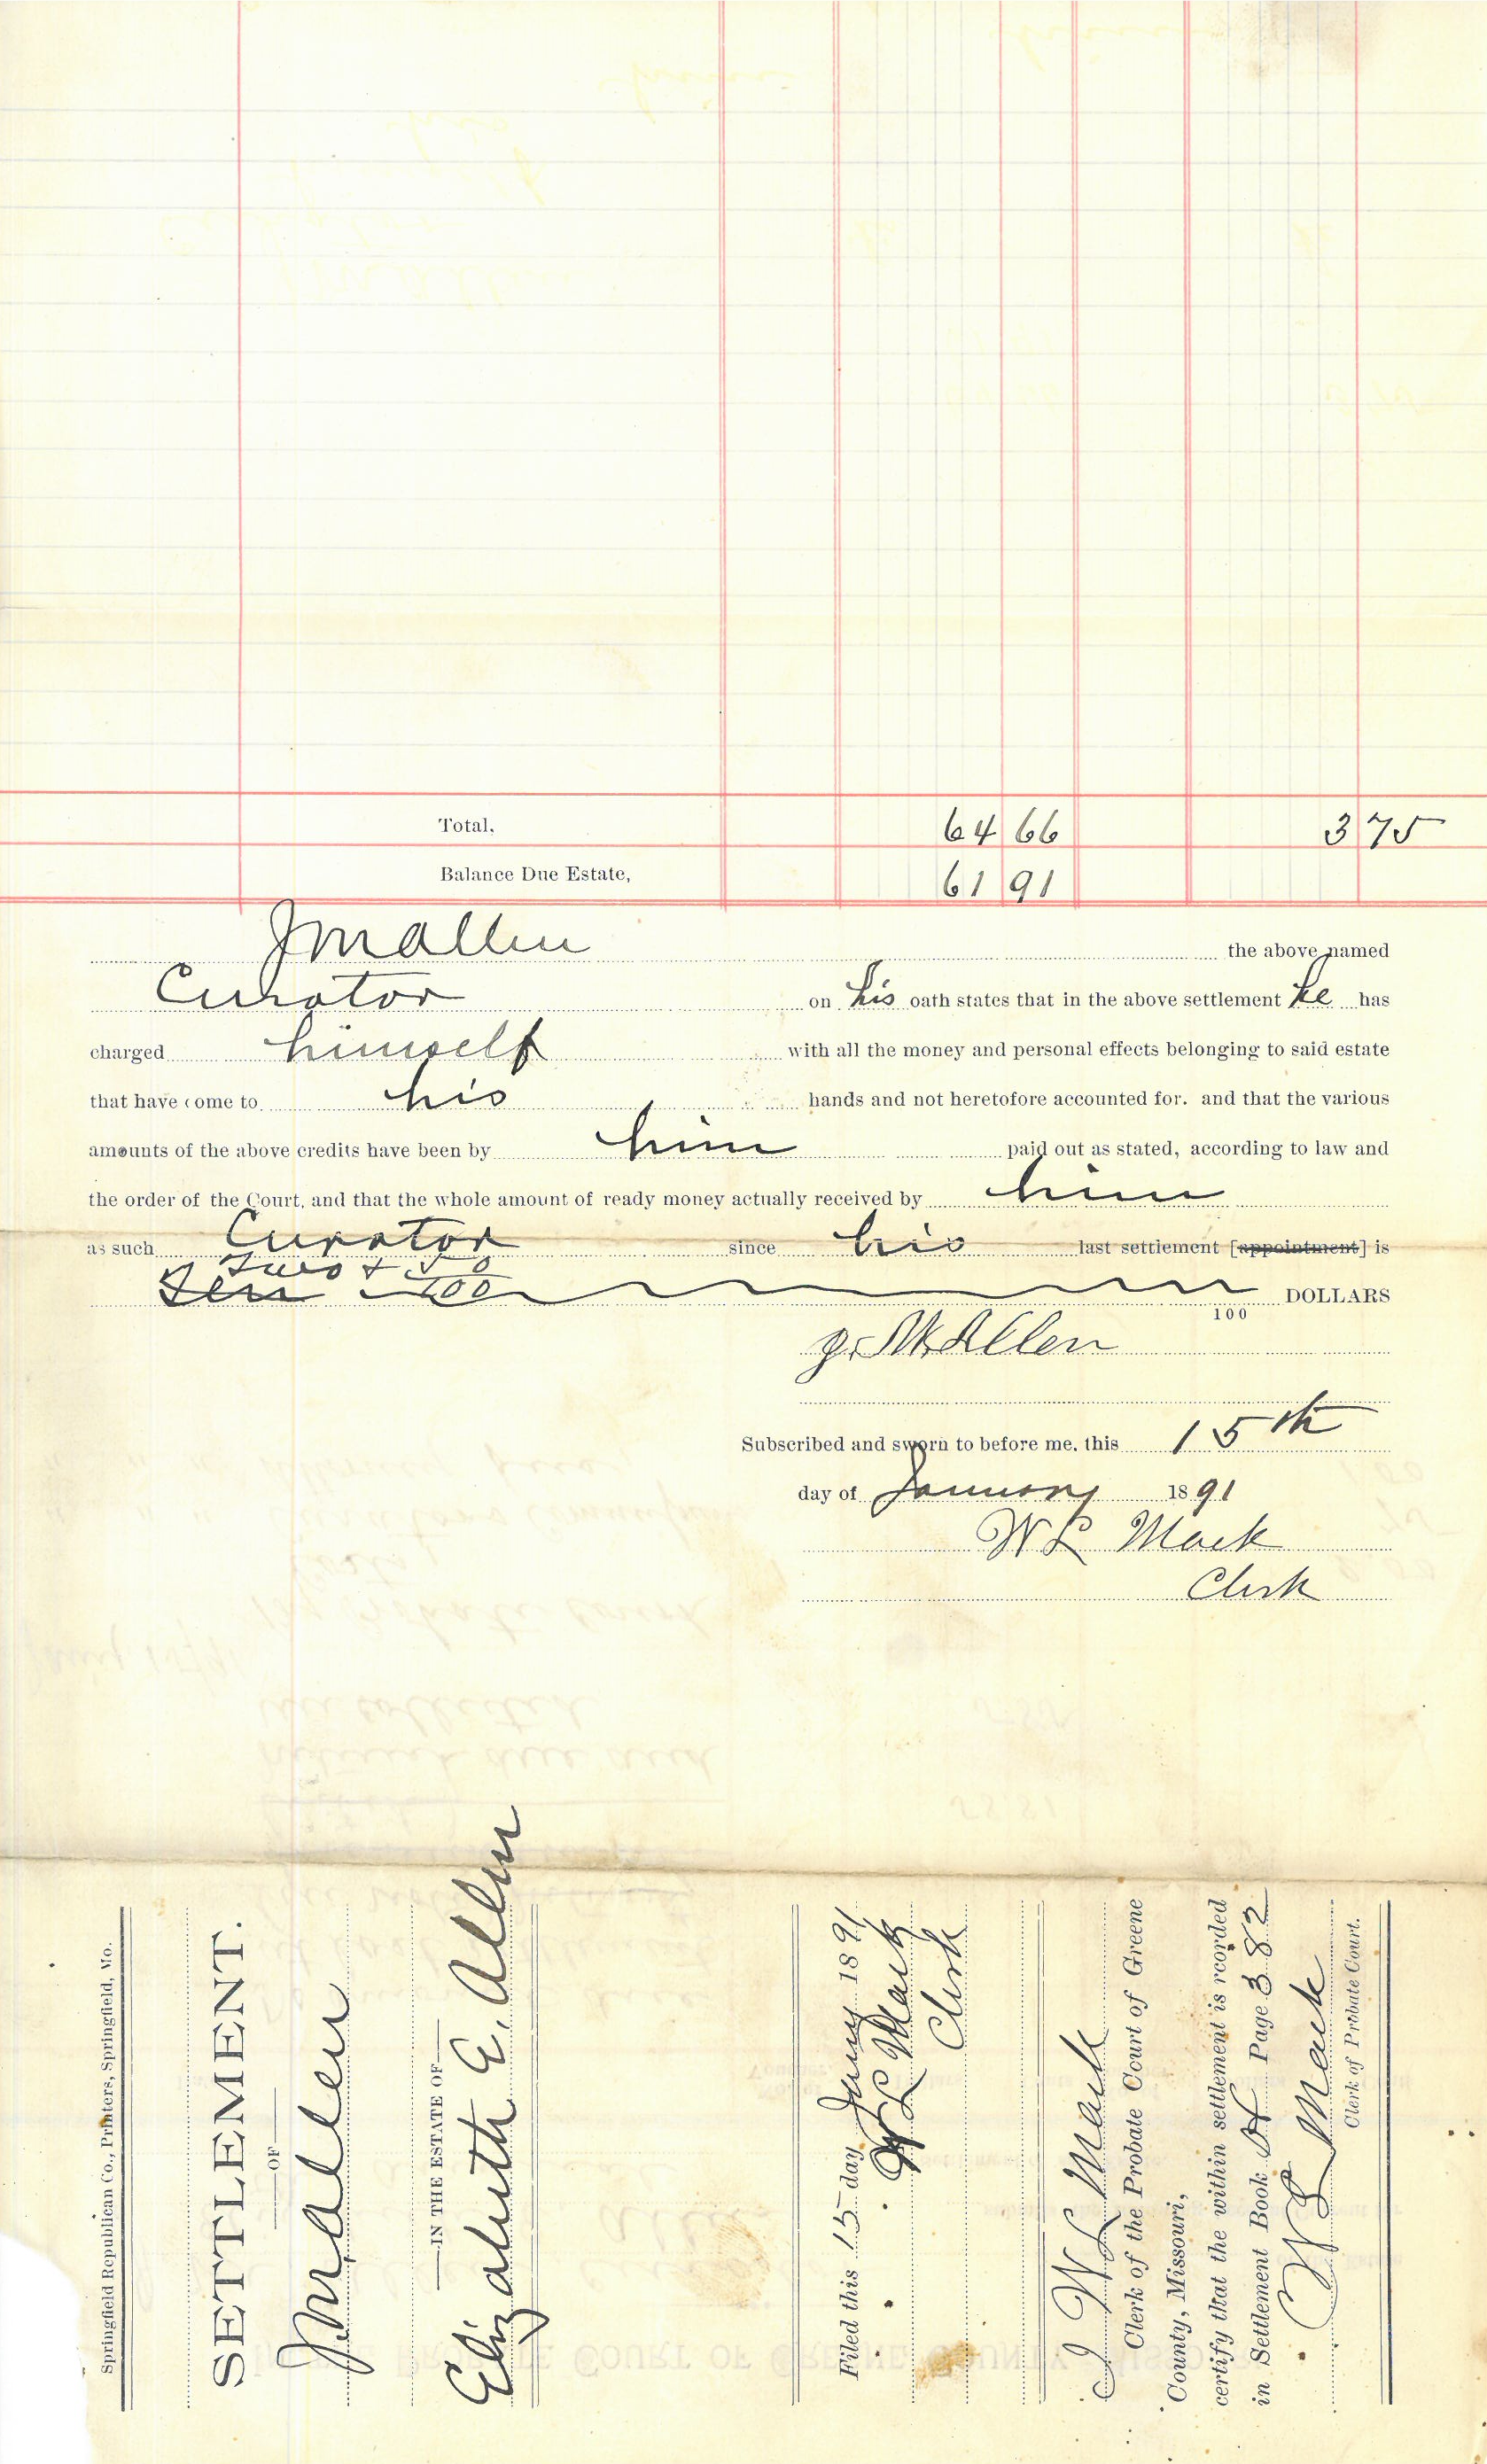 Total, 64 66 3 75
Balance Due Estate, 61 91
J M Allen the above named
Curator on his oath states that in the above settlement he has
charged himself with all the money and personal effects belonging to said estate
that have come to his hands and not heretofore accounted for. and that the various
amounts of the above credits have been by him paid out as stated, according to law and
the order of the Court, and that the whole amount of ready money actually received by him
as such Curator since his last settlement [appointment] is
Two + 50
Ten 100 DOLLARS
100
J. M. Allen
Subscribed and sworn to before me, this 15th
day of January 1891
W L Mack
Clerk
Springfield Republican Co., Printers, Springfield, Mo.
SETTLEMENT.
OF
J. M. Allen
IN THE ESTATE OF
Elizabeth E. Allen
Filed this 15 day Jany 1891
W L Mack
Clerk
I W L Mack
Clerk of the Probate Court of Greene
County, Missouri,
certify that the within settlement is recorded
in Settlement Book Page 382
W L Mack
Clerk of Probate Court.